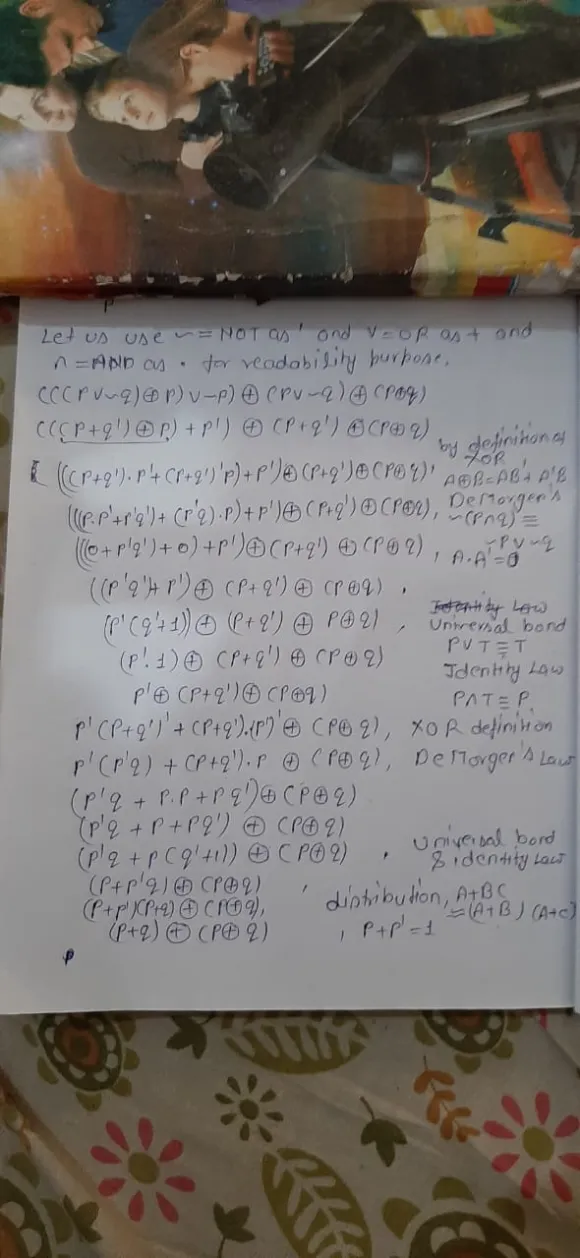 Let us use ~ = NOT as ' and V = OR as + and
∧ = AND as · for readability burpose.
(((P∨~q)⊕P)∨~P)⊕(P∨~q)⊕(P⊕q)
(((P+q')⊕P)+P')⊕(P+q')⊕(P⊕q)
(((P+q')·P'+(P+q')'P)+P')⊕(P+q')⊕(P⊕q), by definition of XOR A⊕B=AB'+A'B
(((P·P'+P'q')+(P'q)·P)+P')⊕(P+q')⊕(P⊕q), DeMorgen's ~(P∧q)≡~P∨~q
(((0+P'q')+0)+P')⊕(P+q')⊕(P⊕q), A·A'=0
((P'q')+P')⊕(P+q')⊕(P⊕q),
(P'(q'+1))⊕(P+q')⊕P⊕q), Universal bond P∨T≡T
(P'·1)⊕(P+q')⊕(P⊕q) Identity Law
P'⊕(P+q')⊕(P⊕q) P∧T≡P.
P'(P+q')'+(P+q')·(P')'⊕(P⊕q), XOR definition
P'(P'q)+(P+q')·P⊕(P⊕q), DeMorgen's Law
(P'q+P·P+Pq')⊕(P⊕q)
(P'q+P+Pq')⊕(P⊕q)
(P'q+P(q'+1))⊕(P⊕q), Universal bond & identity Law
(P+P'q)⊕(P⊕q),
(P+P')(P+q)⊕(P⊕q), distribution, A+BC=(A+B)(A+C)
(P+q)⊕(P⊕q), P+P'=1
P